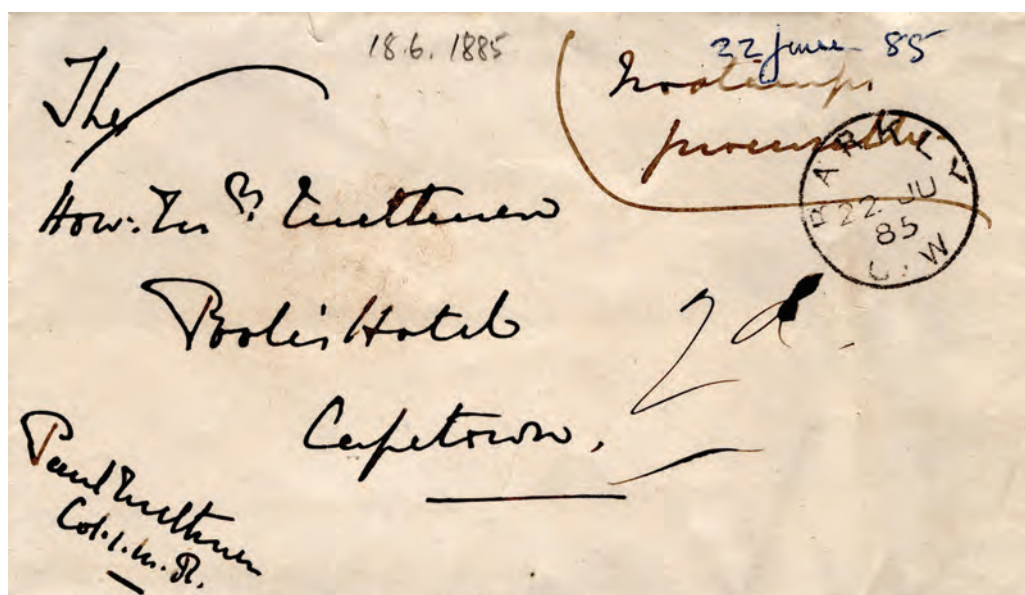 18.6.1885
22 June 85
No stamps
procurable
BARKLY
22 JU
85
G.W
The
Hon: Mrs P. Methuen
Poole's Hotel
2d.
Capetown,
Paul Methuen
Col. 1. M. R.